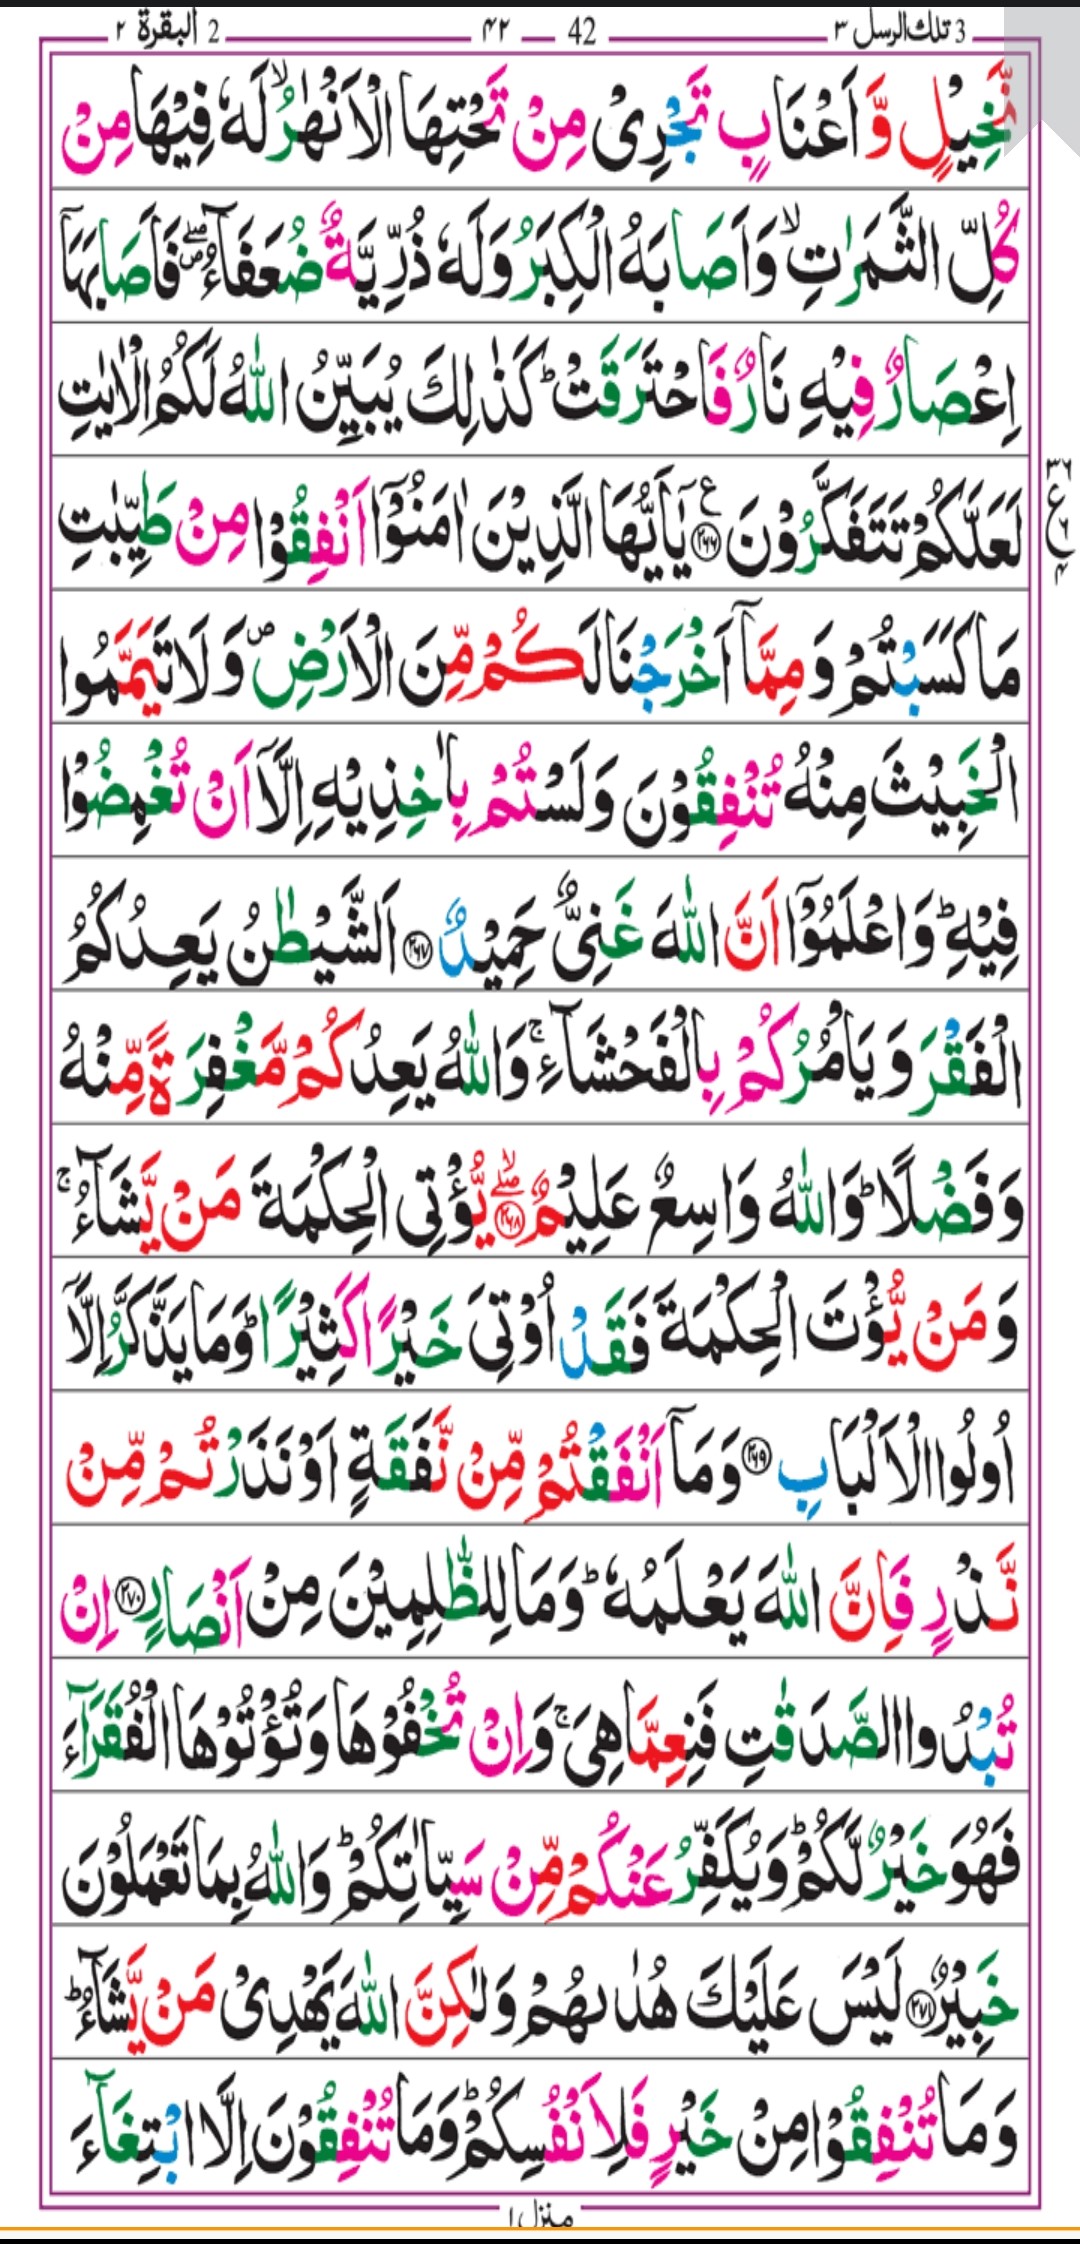 3 تلك الرسل ٣ 42 — ۴۲ 2 البقرة ٢
نَّخِيْلٍ وَّ اَعْنَابٍ تَجْرِىْ مِنْ تَحْتِهَا الْاَنْهٰرُ ۙ لَهٗ فِيْهَا مِنْ
كُلِّ الثَّمَرٰتِ ۙ وَاَصَابَهُ الْكِبَرُ وَلَهٗ ذُرِّيَّةٌ ضُعَفَآءُ ۖۚ فَاَصَابَهَاۤ
اِعْصَارٌ فِيْهِ نَارٌ فَاحْتَرَقَتْ ؕ كَذٰلِكَ يُبَيِّنُ اللّٰهُ لَكُمُ الْاٰيٰتِ
لَعَلَّكُمْ تَتَفَكَّرُوْنَ ﴿۲۶۶﴾ ع يٰۤاَيُّهَا الَّذِيْنَ اٰمَنُوْۤا اَنْفِقُوْا مِنْ طَيِّبٰتِ
۳۶ ع ۶ ۴
مَا كَسَبْتُمْ وَ مِمَّاۤ اَخْرَجْنَا لَكُمْ مِّنَ الْاَرْضِ ۪ وَ لَا تَيَمَّمُوا
الْخَبِيْثَ مِنْهُ تُنْفِقُوْنَ وَلَسْتُمْ بِاٰخِذِيْهِ اِلَّاۤ اَنْ تُغْمِضُوْا
فِيْهِ ؕ وَاعْلَمُوْۤا اَنَّ اللّٰهَ غَنِىٌّ حَمِيْدٌ ﴿۲۶۷﴾ اَلشَّيْطٰنُ يَعِدُكُمُ
الْفَقْرَ وَ يَاْمُرُكُمْ بِالْفَحْشَآءِ ۚ وَاللّٰهُ يَعِدُكُمْ مَّغْفِرَةً مِّنْهُ
وَفَضْلًا ؕ وَاللّٰهُ وَاسِعٌ عَلِيْمٌ ﴿۲۶۸﴾ ۖۙ يُّؤْتِى الْحِكْمَةَ مَنْ يَّشَآءُ ۚ
وَ مَنْ يُّؤْتَ الْحِكْمَةَ فَقَدْ اُوْتِىَ خَيْرًا كَثِيْرًا ؕ وَمَا يَذَّكَّرُ اِلَّاۤ
اُولُوا الْاَلْبَابِ ﴿۲۶۹﴾ وَمَاۤ اَنْفَقْتُمْ مِّنْ نَّفَقَةٍ اَوْ نَذَرْتُمْ مِّنْ
نَّذْرٍ فَاِنَّ اللّٰهَ يَعْلَمُهٗ ؕ وَمَا لِلظّٰلِمِيْنَ مِنْ اَنْصَارٍ ﴿۲۷۰﴾ اِنْ
تُبْدُوا الصَّدَقٰتِ فَنِعِمَّا هِىَ ۚ وَاِنْ تُخْفُوْهَا وَتُؤْتُوْهَا الْفُقَرَآءَ
فَهُوَ خَيْرٌ لَّكُمْ ؕ وَيُكَفِّرُ عَنْكُمْ مِّنْ سَيِّاٰتِكُمْ ؕ وَاللّٰهُ بِمَا تَعْمَلُوْنَ
خَبِيْرٌ ﴿۲۷۱﴾ لَيْسَ عَلَيْكَ هُدٰىهُمْ وَلٰكِنَّ اللّٰهَ يَهْدِىْ مَنْ يَّشَآءُ ؕ
وَ مَا تُنْفِقُوْا مِنْ خَيْرٍ فَلِاَنْفُسِكُمْ ؕ وَمَا تُنْفِقُوْنَ اِلَّا ابْتِغَآءَ
منزل ۱